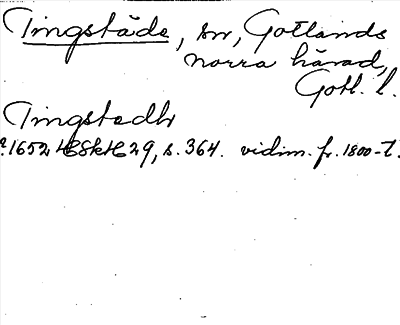 Tingstäde, sn, Gotlands
norra härad,
Gotl. l.
Tingstedh
1652 HSkH 29, s. 364. vidim. fr. 1800-t.